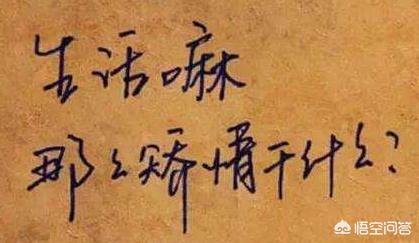 生活嘛
那么矫情干什么?
悟空问答